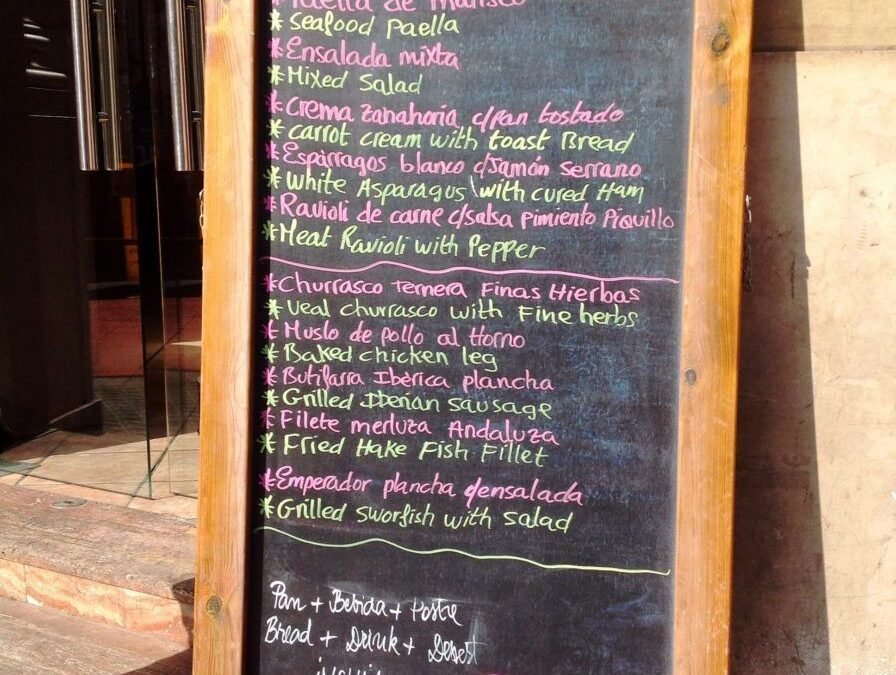 * Paella de marisco
* seafood paella
* Ensalada mixta
* Mixed Salad
* Crema Zanahoria c/pan tostado
* carrot cream with toast Bread
* Espárragos blanco c/Jamón serrano
* white Asparagus with cured Ham
* Ravioli de carne c/salsa pimiento Piquillo
* Meat Ravioli with Pepper
* Churrasco Ternera Finas Hierbas
* Veal churrasco with Fine herbs
* Muslo de pollo al Horno
* Baked chicken leg
* Butifarra Ibérica plancha
* Grilled Iberian sausage
* Filete merluza Andaluza
* Fried Hake Fish Fillet
* Emperador plancha c/ensalada
* Grilled sworfish with salad
Pan + Bebida + Postre
Bread + Drink + Desert